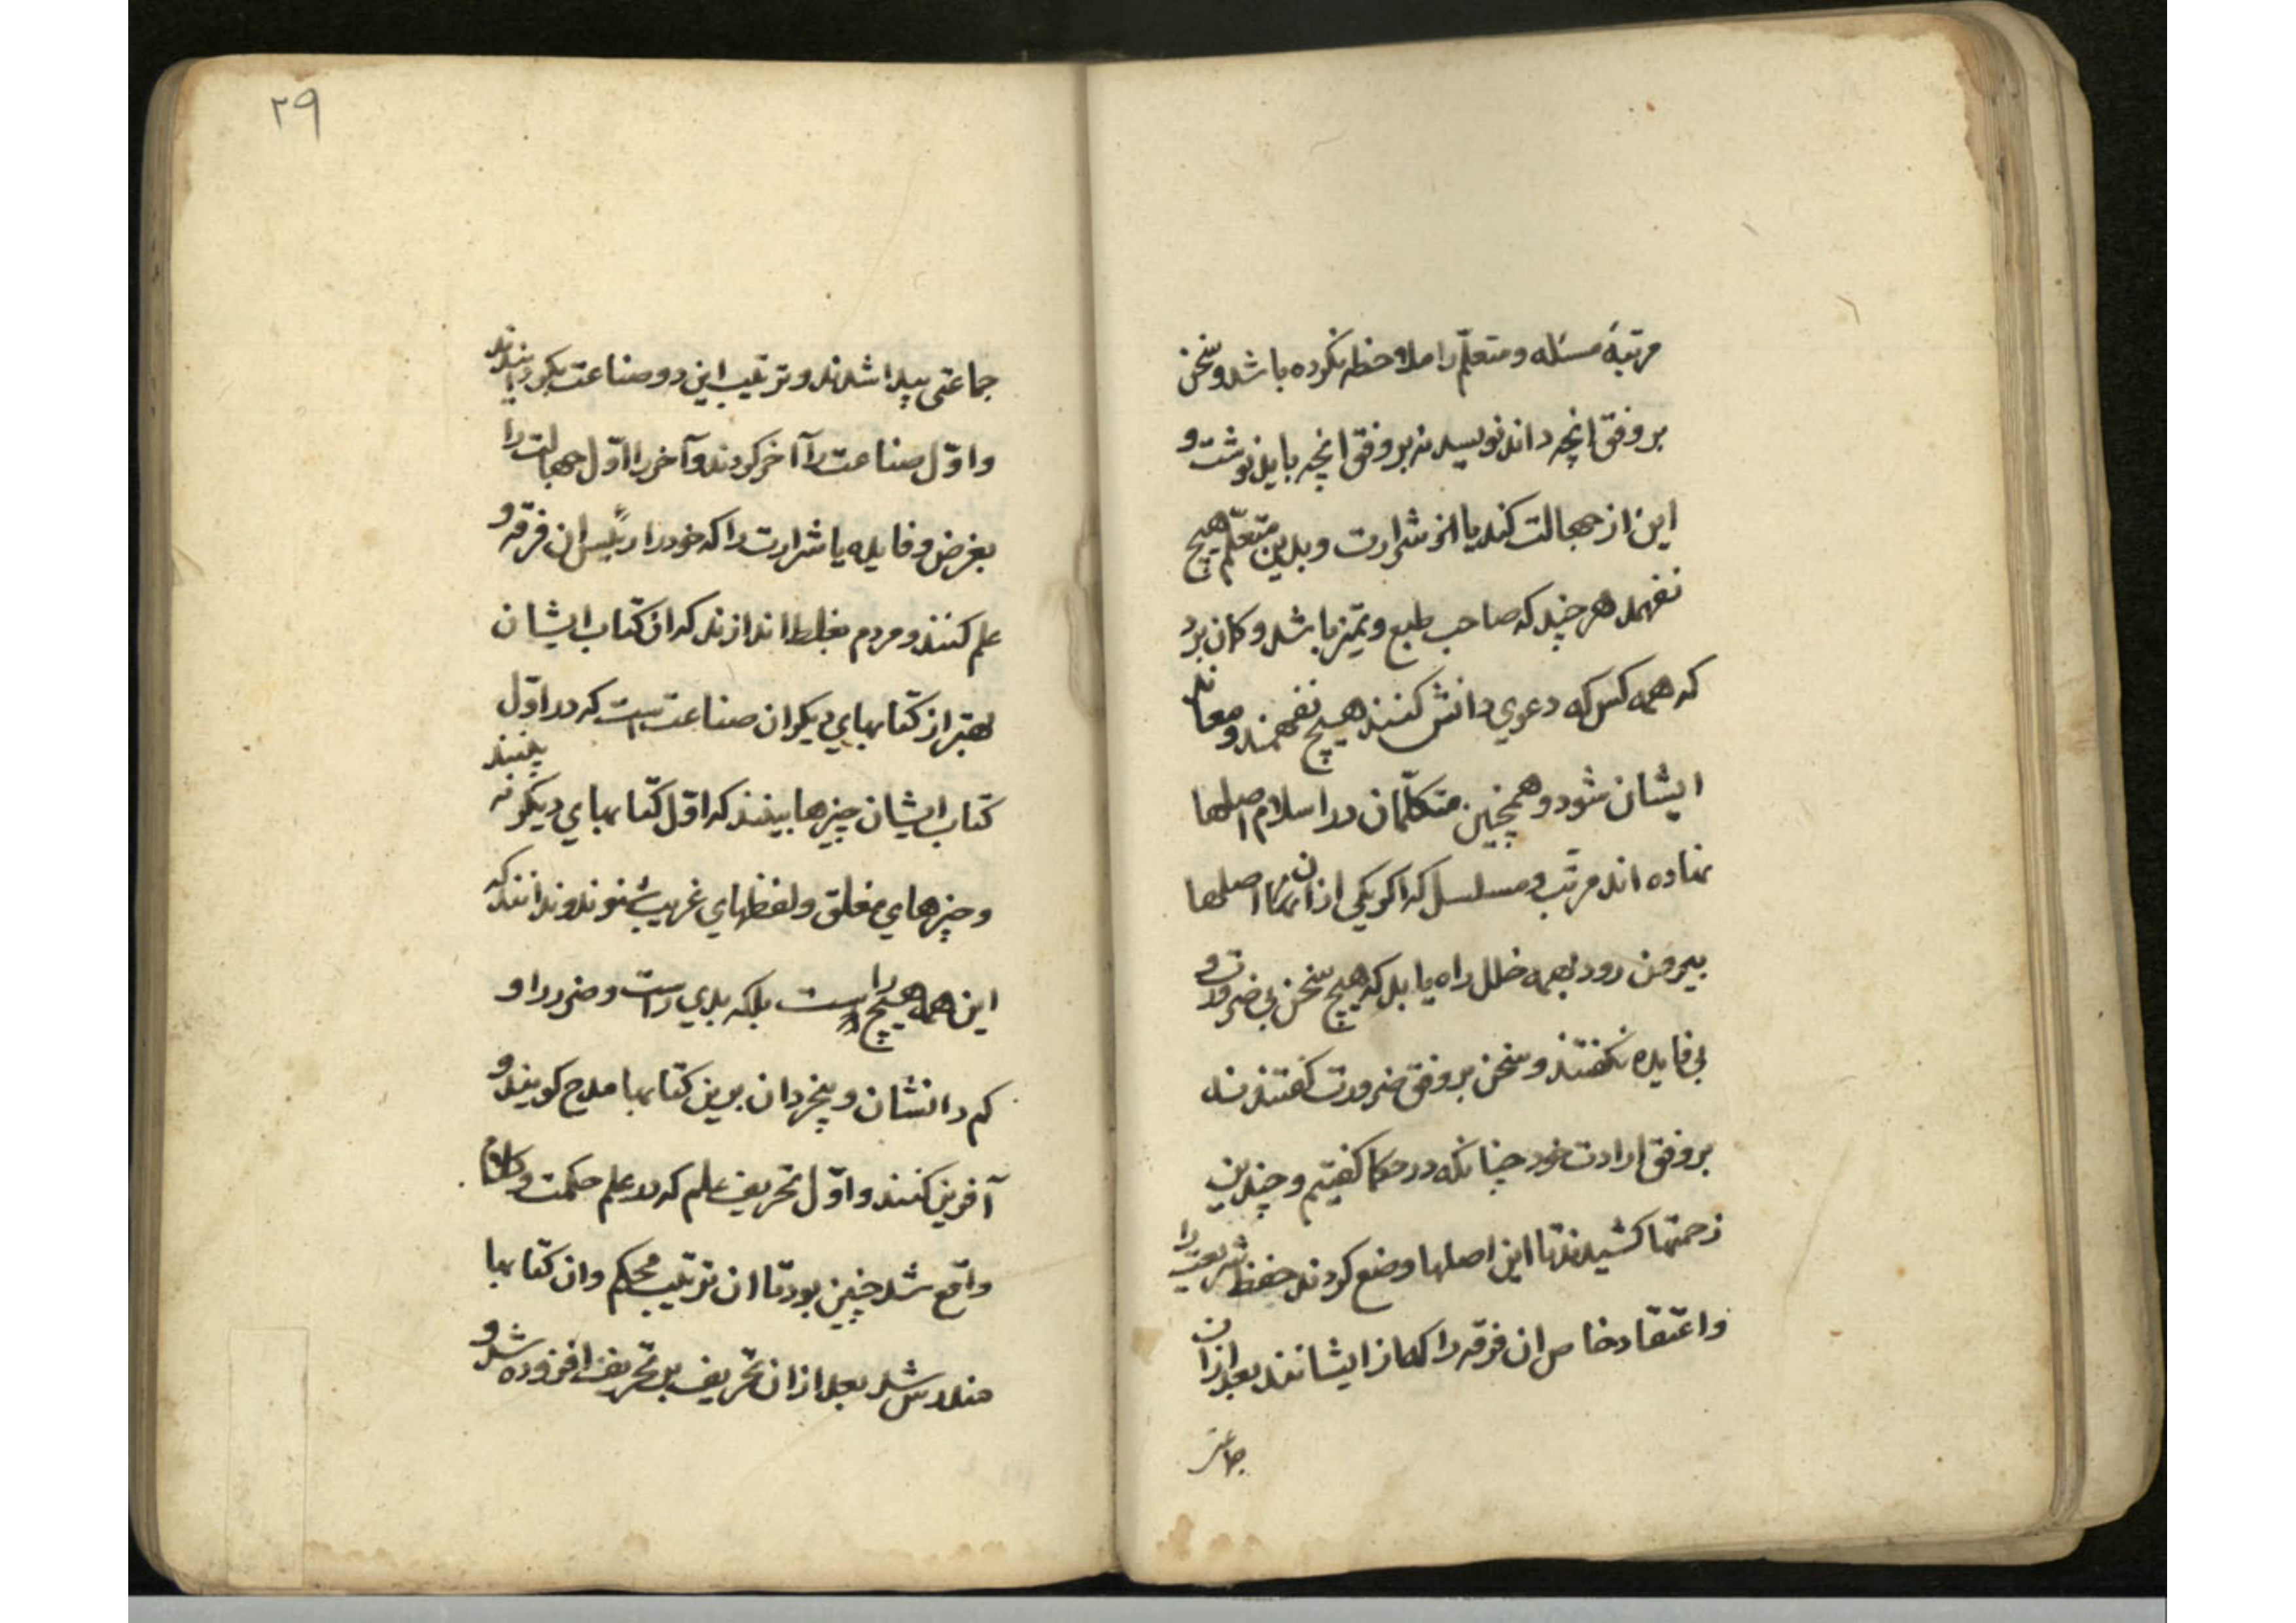 مرتبهٔ مسئله و متعلّم را ملاحظه نکرده باشد و سخن
بر وفق انچه داند نویسد نه بر وفق انچه باید نوشت و
این از جهالت کند یا از شرارت و بدین متعلّم هیچ
نفهمد هر چند که صاحب طبع و تمیز باشد و کمان برد
که همه کس که دعوي دانش کنند هیچ نفهمند و معاند
ایشان شود و همچنین متکلّمان در اسلام اصلها
نهاده اند مرتّب و مسلسل که اکر یکي ازان اصلها
بیرون رود بهمه خلل راه یابد که هیچ سخن بي ضرورت و
بي فایده نکفتند و سخن بر وفق ضرورت کفتند نه
بر وفق ارادت خود چنانکه در حکما کفتیم و چندین
زحمتها کشیدند تا این اصلها وضع کردند حفظ شریعت را
و اعتقاد خاص ان فرقه را که از ایشانند بعد ازان
جماعتی
۲۹
جماعتي پیدا شدند و ترتیب این دو صناعت بکردانیدند
و اوّل صناعت را آخر کردند و آخر را اوّل جهالت را
بغرض و فایده یا شرارت را که خود را رئیس ان فرقه و
علم کنند و مردم بغلط اندازند که ان کتاب ایشان
بهتر از کتابهاي دیکر ان صناعتست که در اوّل
کتاب ایشان چیزها بینند که اوّل کتابهاي دیکر نه بینند
و چیزهاي مغلق و لفظهاي غریب شنوند و ندانند که
این همه هیچ را است بلکه بدي راست و ضرر را و
کم دانشان و بیخردان برین کتابها مدح کویند و
آفرین کنند و اوّل تحریف علم که در علم حکمت و کلام
واقع شد چنین بود تا ان ترتیب محکم و ان کتابها
مندرس شد بعد ازان تحریف بر تحریف افزوده شد و